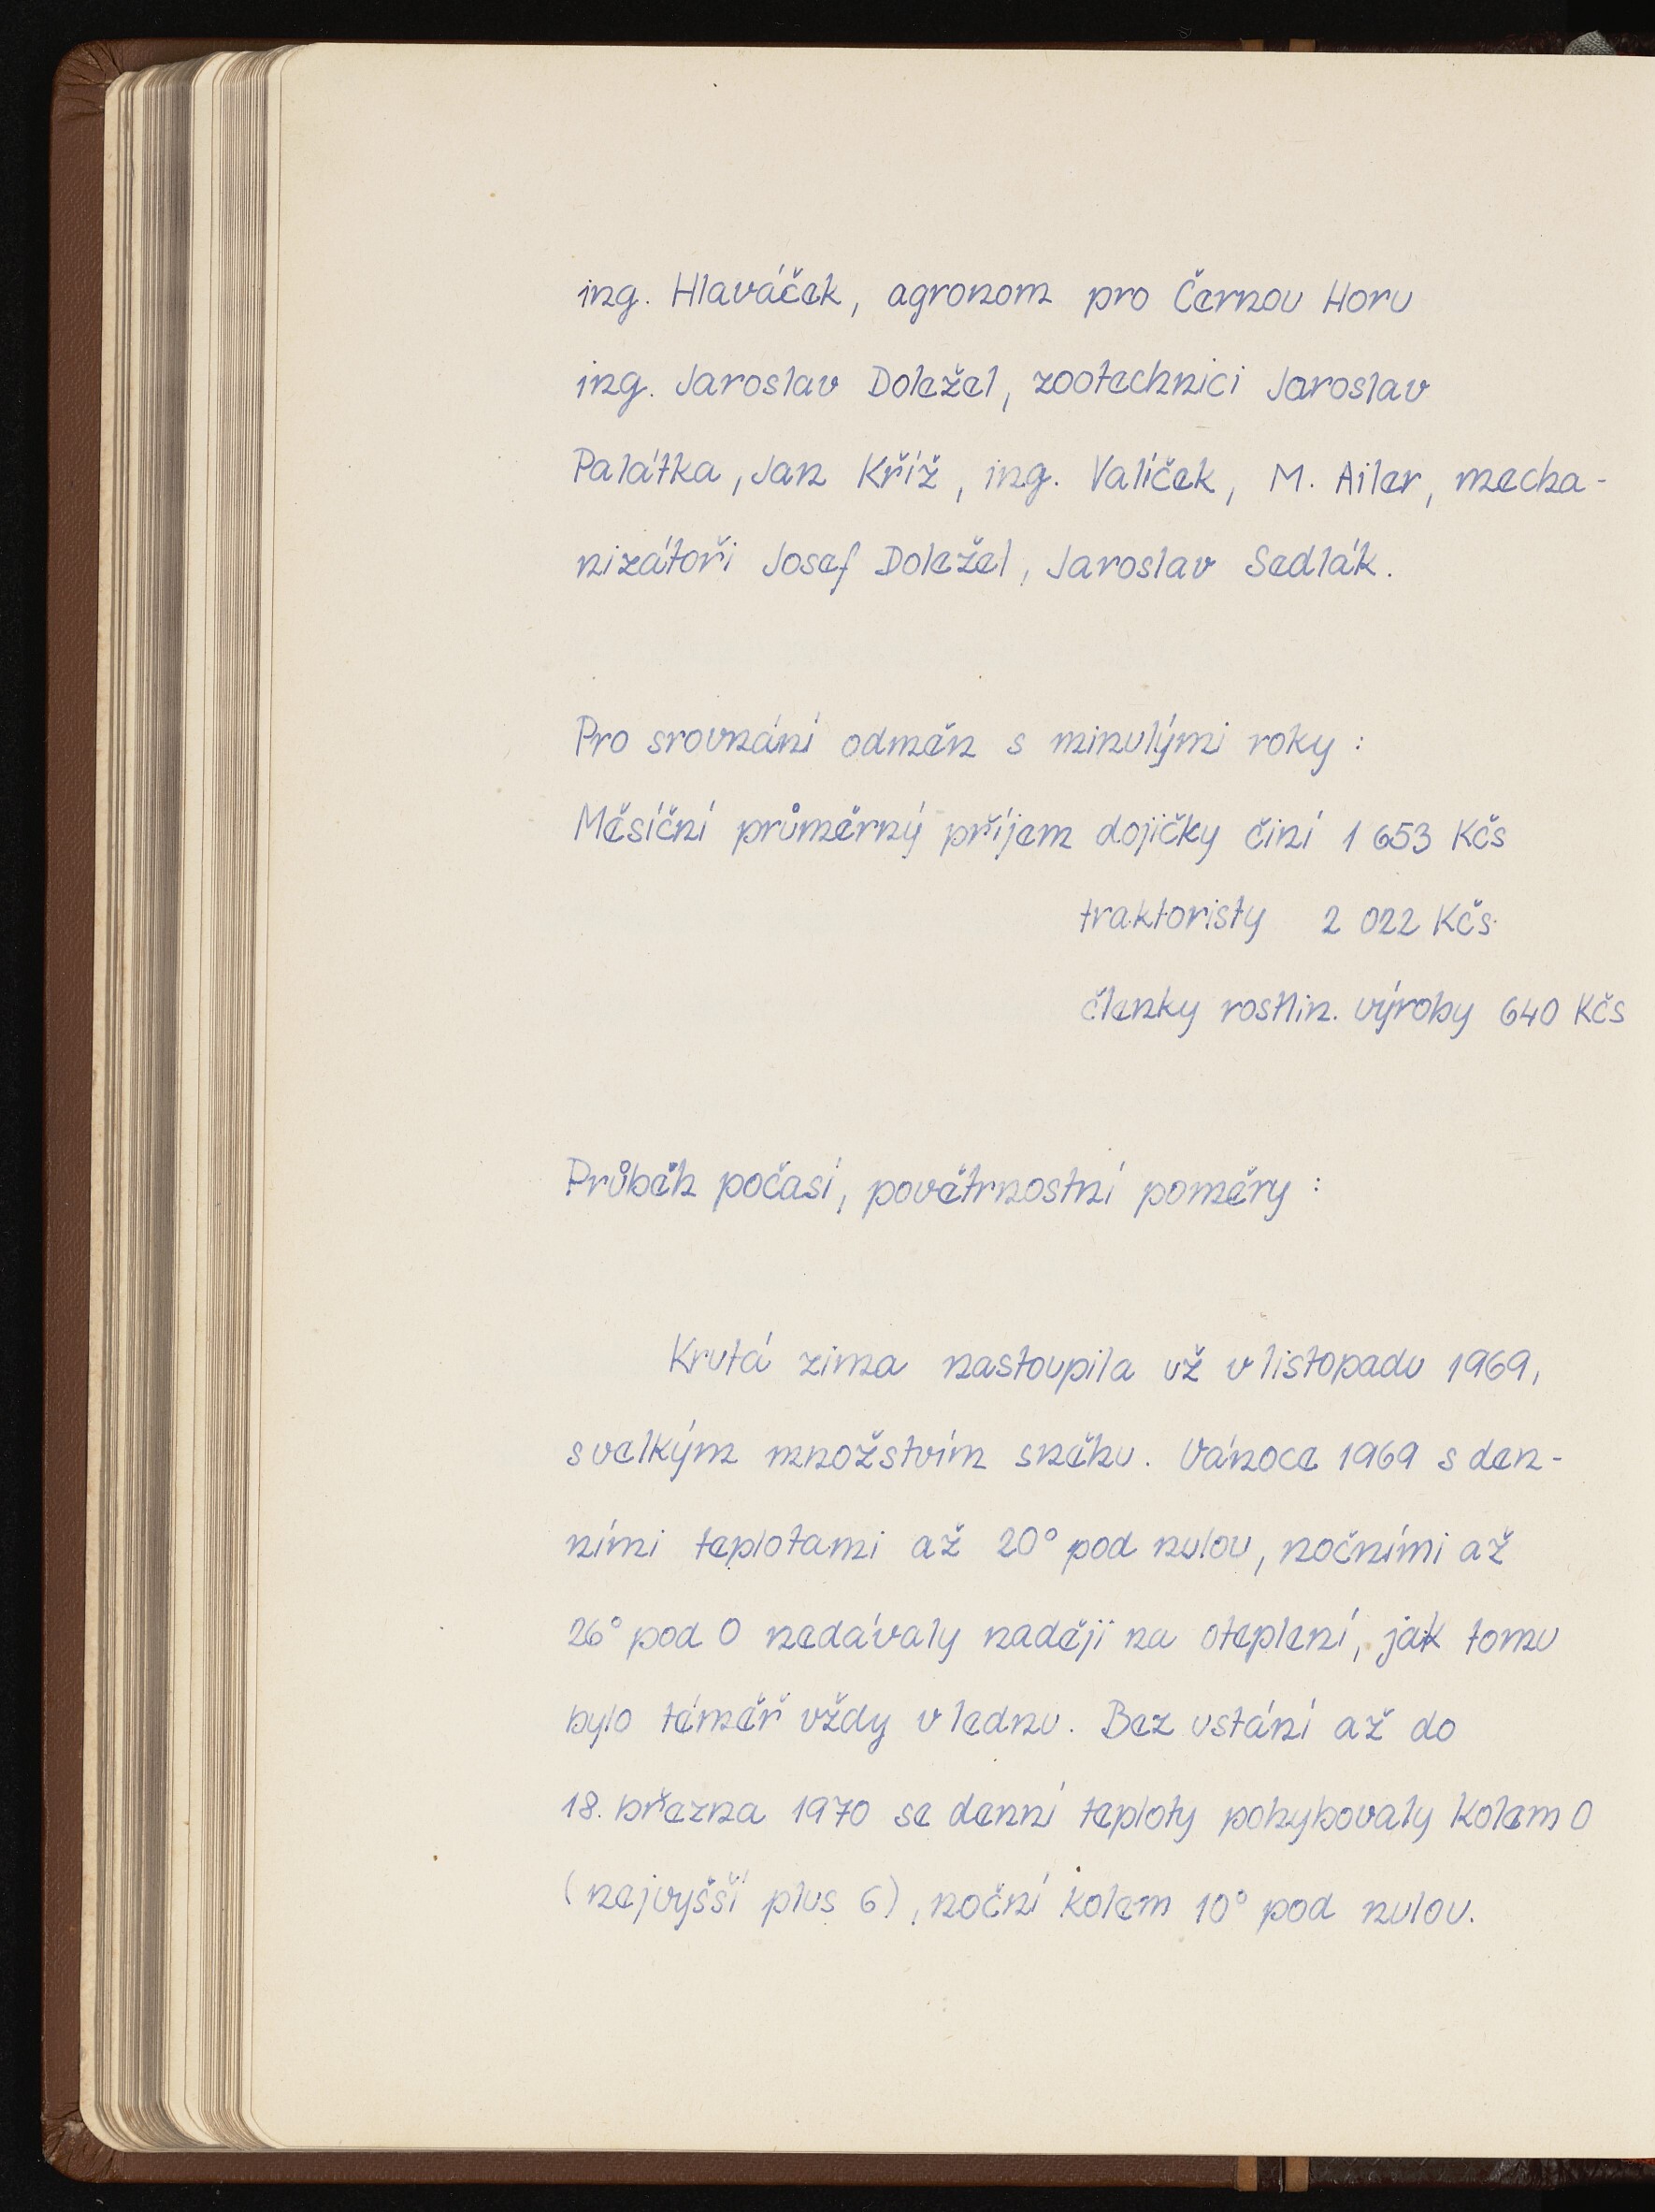 ing. Hlaváček, agronom pro Černou Horu
ing. Jaroslav Doležel, zootechnici Jaroslav
Palátka, Jan Kříž, ing. Valíček, M. Ailer, mecha-
nizátoři Josef Doležel, Jaroslav Sedlák.
Pro srovnání odměn s minulými roky:
Měsíční průměrný příjem dojičky činí 1 653 Kčs
traktoristy 2 022 Kčs
členky rostlin. výroby 640 Kčs
Průběh počasí, povětrnostní poměry:
Krutá zima nastoupila už v listopadu 1969,
s velkým množstvím sněhu. Vánoce 1969 s den-
ními teplotami až 20° pod nulou, nočními až
26° pod 0 nedávaly naději na oteplení, jak tomu
bylo téměř vždy v lednu. Bez ustání až do
18. března 1970 se denní teploty pohybovaly kolem 0
(nejvyšší plus 6), noční kolem 10° pod nulou.